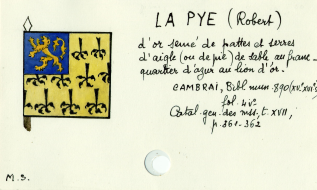 LA PYE (Robert)
d'or semé de pattes et serres
d'aigle (ou de pie) de sable au franc-
quartier d'azur au lion d'or.
CAMBRAI, Bibl mun. 890 (XVe-XVIe s)
fol. 4v°
Catal. gen. des mss, t. XVII,
p. 361-362
M.S.